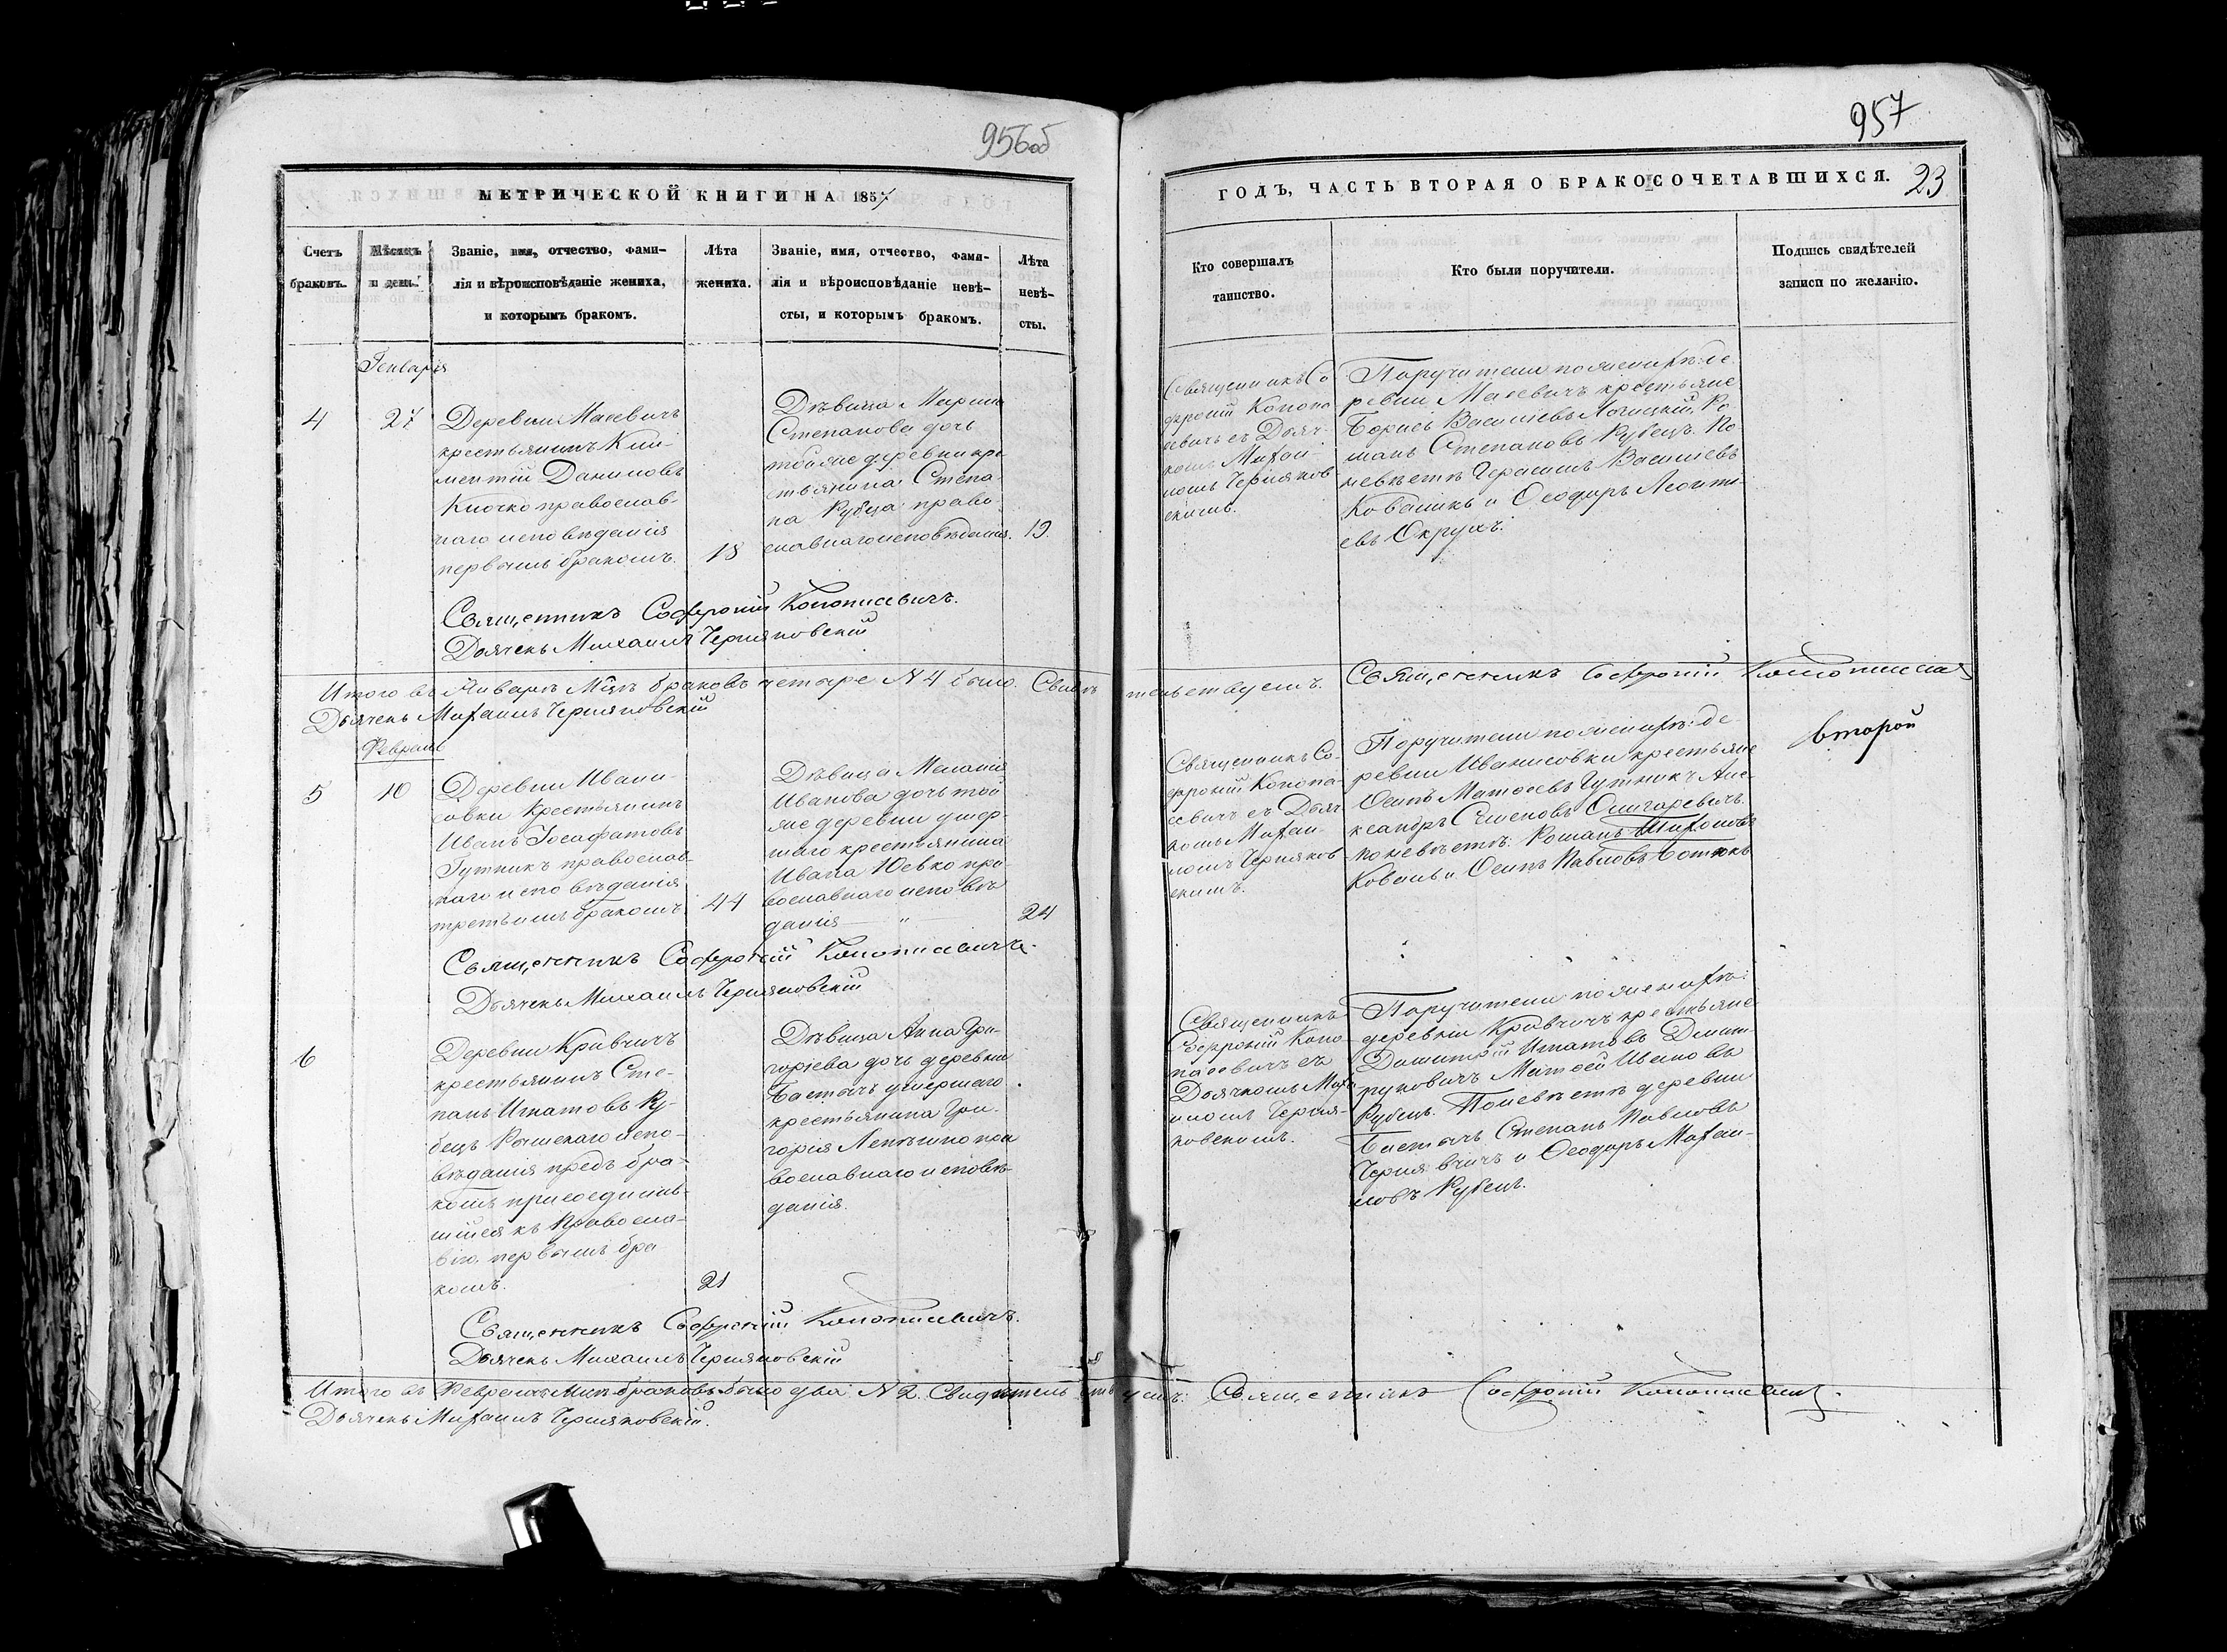 956об
МЕТРИЧЕСКОЙ КНИГИ НА 1857
Счетъ браковъ.
Мѣсяцъ и день.
Званіе, имя, отчество, фами-
лія и вѣроисповѣданіе жениха,
и которымъ бракомъ.
Лѣта жениха.
Званіе, имя, отчество, фами-
лія и вѣроисповѣданіе невѣ-
сты, и которымъ бракомъ.
Лѣта невѣ-
сты.
Генваря
4
27
Деревни Масевичъ
крестьянинъ Кли-
ментій Даниловъ
Клочко православ-
наго исповѣданія
первымъ бракомъ.
18
Дѣвица Марина
Степанова дочь
тойже деревни кре
стьянина Степа-
на Рубца право-
славнаго исповѣданія.
19.
Священникъ Софроній Конопасевичъ.
Дьячекъ Михаилъ Черняковскій
Итого въ Январѣ М͠цѣ браковъ четыре N 4 было. Свидѣ
Дьячекъ Михаилъ Черняковскій
Февраля
5
10
Деревни Ивани-
совки Крестьянинъ
Иванъ Іосафатовъ
Гутникъ православ-
наго исповѣданія
третьимъ бракомъ.
44
Дѣвица Меланія
Иванова дочь той
же деревни умер-
шаго крестьянина
Ивана Юевко пра-
вославнаго исповѣ
данія "
24
Священникъ Софроній Конопасевичъ.
Дьячекъ Михаилъ Черняковскій
6
Деревни Кривчичъ
крестьянинъ Сте-
панъ Игнатовъ Ру-
бецъ Римскаго испо-
вѣданія предъ бра-
комъ присоединив-
шійся къ Правосла-
вію, первымъ бра
комъ.
21
Дѣвица Анна Гри-
горіева дочь деревни
умершаго
крестьянина Гри-
горія
вославнаго исповѣ-
данія.
Священникъ Софроній Конопасевичъ.
Дьячекъ Михаилъ Черняковскій
Итого въ Февралѣ М͠цѣ браковъ было два N 2. Свидѣтельств
Дьячекъ Михаилъ Черняковскій.
957
ГОДЪ, ЧАСТЬ ВТОРАЯ О БРАКОСОЧЕТАВШИХСЯ.
23
Кто совершалъ
таинство.
Кто были поручители.
Подпись свидѣтелей
записи по желанію.
Священникъ Со
фроній Конопа
севичъ съ Дьяч-
комъ Михаи-
ломъ Черняков
скимъ.
Поручители по женихѣ: де
ревни Масевичъ крестьяне
Борисъ Васильевъ Ро-
манъ Степановъ Рубецъ. По
невѣстѣ Герасимъ Васильевъ
Коваликъ и Ѳеодоръ Леонть-
евъ Окрухъ.
тельствуемъ. Священникъ Софроній Конопасев
Священникъ Со-
фроній Конопа-
севичъ съ Дьяч
комъ Михаи-
ломъ Черняков
скимъ.
Поручители по женихѣ: де
ревни Иванисовки крестьяне
Осипъ Матѳеевъ Гутникъ Але-
ксандръ Семеновъ
по невѣстѣ: Романъ
Коваль и Осипъ Павловъ
второй
Священникъ
Софроній Коно-
пасевичъ съ
Дьячкомъ Миха
иломъ Черня-
ковскимъ.
Поручители по женихѣ:
деревни Кривчичъ крестьяне
Димитрій Игнатовъ Дмит-
руковичъ Матѳей Ивановъ
Рубецъ. По невѣстѣ деревни
Степанъ Павловъ
и Ѳеодоръ Михаи-
ловъ Рубецъ.
уемъ: Священникъ Софроній Конопасевичъ.